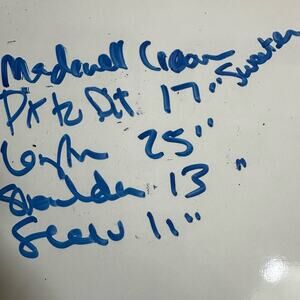 Madewell Cream Sweater
Pit to Pit 17"
Length 25"
Shoulder 13"
11"